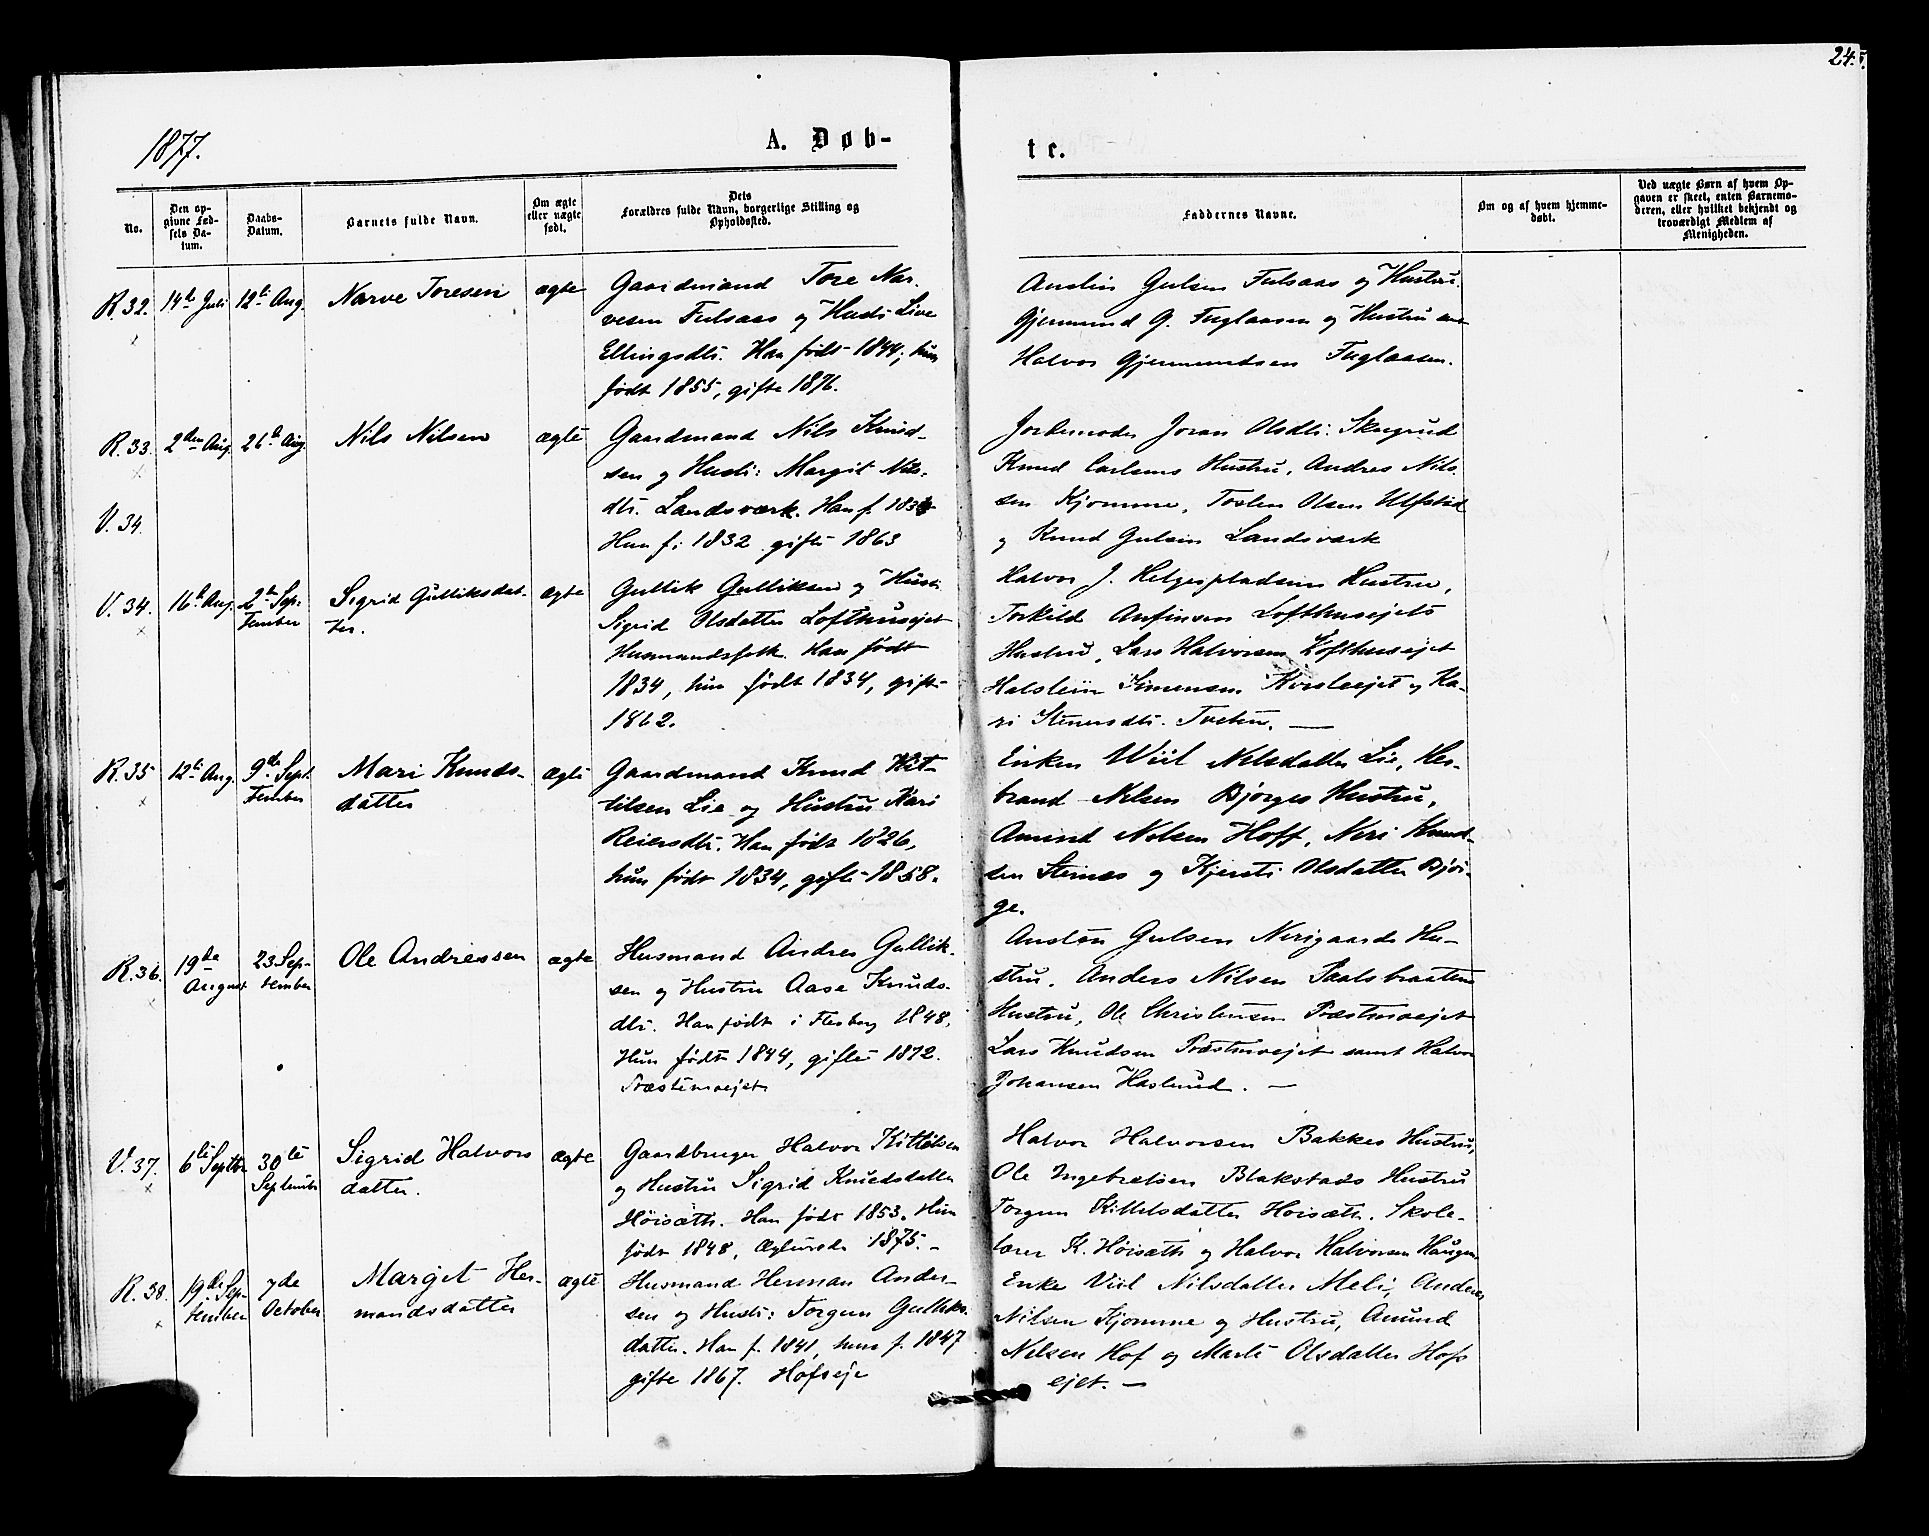 24.
1877.
A. Døb-
te.
No.
Den op-
givne Fød-
sels Da-
tum.
Daabs-
Datum.
Barnets fulde Navn.
Om ægte
eller uægte
født.
Dets
Forældres fulde Navn, borgerlige Stilling og
Opholdssted.
Faddernes Navne.
Om og af hvem hjemme-
døbt.
Ved uægte Børn af hvem Op-
gaven er skeet, enten Barnemo-
deren, eller hvilket bekjendt og
troværdigt Medlem af
Menigheden.
R. 32. 14de Juli 12te Aug. Narve Toresen ægte
Gaardmand Tore Nar-
vesen Fulsaas og Hustr. Live
Ellingsdtr. Han født 1844; hun
født 1855, gifte 1876.
Gulsen Fulsaas og Hustru.
Gjermund G. Fuglaasen og Hustru
Halvor Gjermundsen Fuglaasen.
R. 33. 2den Aug. 26de Aug. Nils Nilsen ægte
Gaardmand Nils Knud-
sen og Hustr: Margit Nils-
dtr. Landsværk. Han f. 183
Hun f. 1832 gifte 1863
Jordemoder Joran Olsdtr.
Knud Carlsens Hustru, Andres Nil-
sen Kjomme, Tosten Olsen
og Knud Gulsen Landsværk
V. 34.
V. 34. 16de Aug. 2den Sep-
tember
Sigrid Gulliksdat-
ter.
ægte
Gullik Gulliksen og Hustr.
Sigrid Olsdatter Lofthusejet
Husmandsfolk. Han født
1834, hun født 1834, gift-
1862.
Halvor J. Helgespladsens Hustru,
Torkild Anfinsen Lofthusejets
Hustru, Lars Halvorsen Lofthusejet
Halstein Simensen og Ka-
ri
R. 35 12te Aug. 9de Sept
tember
Mari Knuds-
datter
ægte
Gaardmand Knud Kit-
tilsen Lie og Hustru Kari
Reiersdtr. Han født 1826,
hun født 1834, gifte 1858.
Enken Viil Nilsdatter Lie, Her-
brand Nilsen Bjørges Hustru,
Amund Nilsen Hoff, Neri Knud-
sen og Kjersti Olsdatter Bjør-
ge.
R. 36. 19de
August
23 Sep-
tember
Ole Andressen ægte
Husmand Andres Gullik-
sen og Hustru Aase Knuds-
dtr. Han født i Flesberg 1848,
Hun født 1844, gifte 1872.
Præstemoejet
Austen Gulsen Nerigaards Hu-
stru. Anders Nilsen Paalsbraatens
Hustru, Ole Christensen Præstmoejet
Lars Knudsen Præstmoejet samt Halvor
Johansen Haslund. —
V. 37. 6te Septbr 30te
September
Sigrid Halvors
datter.
ægte
Gaardbruger Halvor Kittilsen
og Hustru Sigrid Knudsdatter
Høisæth. Han født 1853. Hun
født 1848, Ægteviede 1875. –
Halvor Halvorsen Bakkes Hustru,
Ole Ingebretsen Blakstads Hustru
Torgun Kittelsdatter Høisæth. Skole-
lærer K. Høisæth og Halvor Halvorsen Haugen
R. 38. 19de Sep-
tember
7de
October
Margit Her-
mandsdatter
ægte
Husmand Herman Ander-
sen og Hustr: Torgun Gulliks-
datter. Han f. 1841, hun f. 1847
gifte 1867. Hofseje
Enke Viil Nilsdatter Meli, Anders
Nilsen Kjomme og Hustru, Amund
Nilsen Hof og Marte Olsdatter Hofs
ejet. —